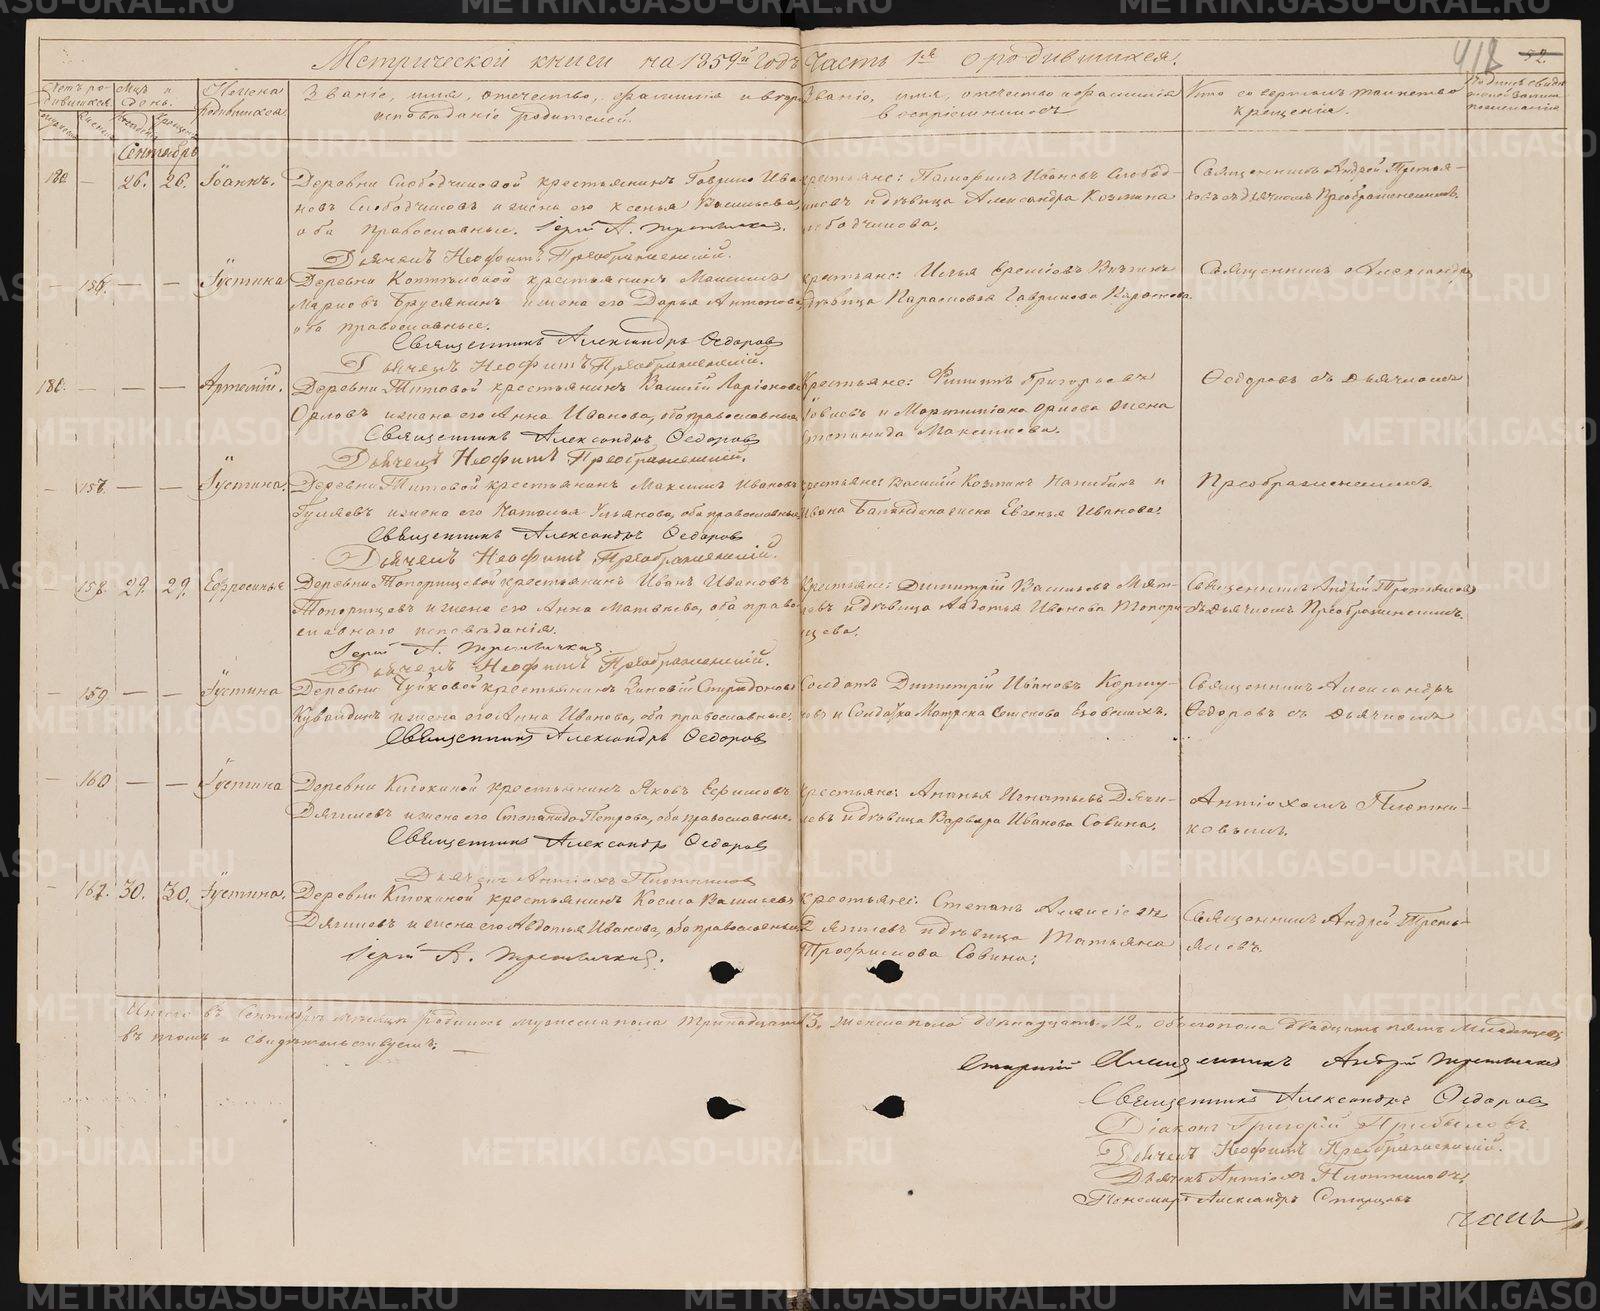 Метрической книги на 1859й Годъ Часть 1я о родившихся.
418
52
Мцъ и День.
Имена родившихся.
Званіе, имя, отечество, фамилія и
исповѣданіе родителей.
Званіе, имя, отечество и фамилія
воспріемниковъ
Кто совершалъ таинство
крещенія.
Сентябрь
180. — 26. 26. Іоаннъ.
Деревни Слободчиковой крестьянинъ Гаврило Ива-
новъ Слободчиковъ и жена его Ксенья Васильева,
оба православные. Іерей А. Третьяковъ.
Дьячекъ Неофитъ Преображенскій.
крестьяне: Памфилъ Ивановъ Слобод-
чиковъ и дѣвица Александра Козмина
Слободчикова.
Священникъ Андрей Третья-
ковъ съ дьячкомъ Преображенскимъ.
— 156. — — Іустина
Деревни крестьянинъ Максимъ
Марковъ Бруснянинъ и жена его Дарья Антонова,
оба православные.
Священникъ Александръ Ѳедоровъ
Дьячекъ Неофитъ Преображенскій.
крестьяне: Илья
дѣвица Гаврилова
Священникъ Александръ
181. — — — Артемій.
Деревни Титовой крестьянинъ Василій Ларіоновъ
Орловъ и жена его Анна Иванова, оба православные
Священникъ Александръ Ѳедоровъ
Дьячекъ Неофитъ Преображенскій.
Крестьяне: Филиппъ Григорьевъ
и Мартиніана Орлова жена
Степанида Максимова.
Ѳедоровъ съ дьячкомъ
— 157. — — Іустина.
Деревни Титовой крестьянинъ Максимъ Ивановъ
Гуляевъ и жена его Наталья Ульянова, оба православные
Священникъ Александръ Ѳедоровъ
Дьячекъ Неофитъ Преображенскій.
крестьяне: Василій Козминъ и
Ивана жена Евгенья Иванова.
Преображенскимъ.
— 158. 29. 29. Ефросинья
Деревни Топорищевой крестьянинъ Иванъ Ивановъ
Топорищевъ и жена его Анна Матвѣева, оба право-
славнаго исповѣданія.
Іерей А. Третьяковъ.
Дьячекъ Неофитъ Преображенскій.
Крестьяне: Димитрій Васильевъ
и дѣвица Авдотья Иванова Топори-
щева.
Священникъ Андрей Третьяковъ
съ дьячкомъ Преображенскимъ.
— 159 — — Іустина
Деревни Чуйковой крестьянинъ Зиновій Спиридоновъ
Кувалдинъ и жена его Анна Иванова, оба православные.
Священникъ Александръ Ѳедоровъ
Солдатъ Димитрій Ивановъ
и Солдатка Матрена Семенова
Священникъ Александръ
Ѳедоровъ съ дьячкомъ
— 160 — — Іустина
Деревни Кипокиной крестьянинъ Яковъ Ефимовъ
Дягилевъ и жена его Степанида Петрова, оба православные.
Священникъ Александръ Ѳедоровъ
Дьячекъ Антіохъ Плотниковъ
крестьяне: Ананья Игнатьевъ Дяги-
левъ и дѣвица Варвара Иванова Совина.
Антіохомъ Плотни-
ковымъ.
— 161. 30. 30. Іустина.
Деревни Кипокиной крестьянинъ Косма Васильевъ
Дягилевъ и жена его Авдотья Иванова, оба православные
Іерей А. Третьяковъ.
крестьяне: Степанъ Алексіевъ
Дягилевъ и дѣвица Татьяна
Трофимова Совина.
Священникъ Андрей Треть-
яковъ.
Итого въ Сентябрѣ мѣсяцѣ родилось мужеска пола тринадцать 13, женска пола двѣнадцать „12„ обоего пола двадцать пять младенцевъ
въ томъ и свидѣтельствуемъ: —
Старшій Священникъ Андрей Третьяковъ
Священникъ Александръ Ѳедоровъ
Діаконъ Григорій Прибыловъ.
Дьячекъ Неофитъ Преображенскій.
Дьячекъ Антіохъ Плотниковъ.
Пономарь Александръ Старцовъ
METRIKI.GASO-URAL.RU